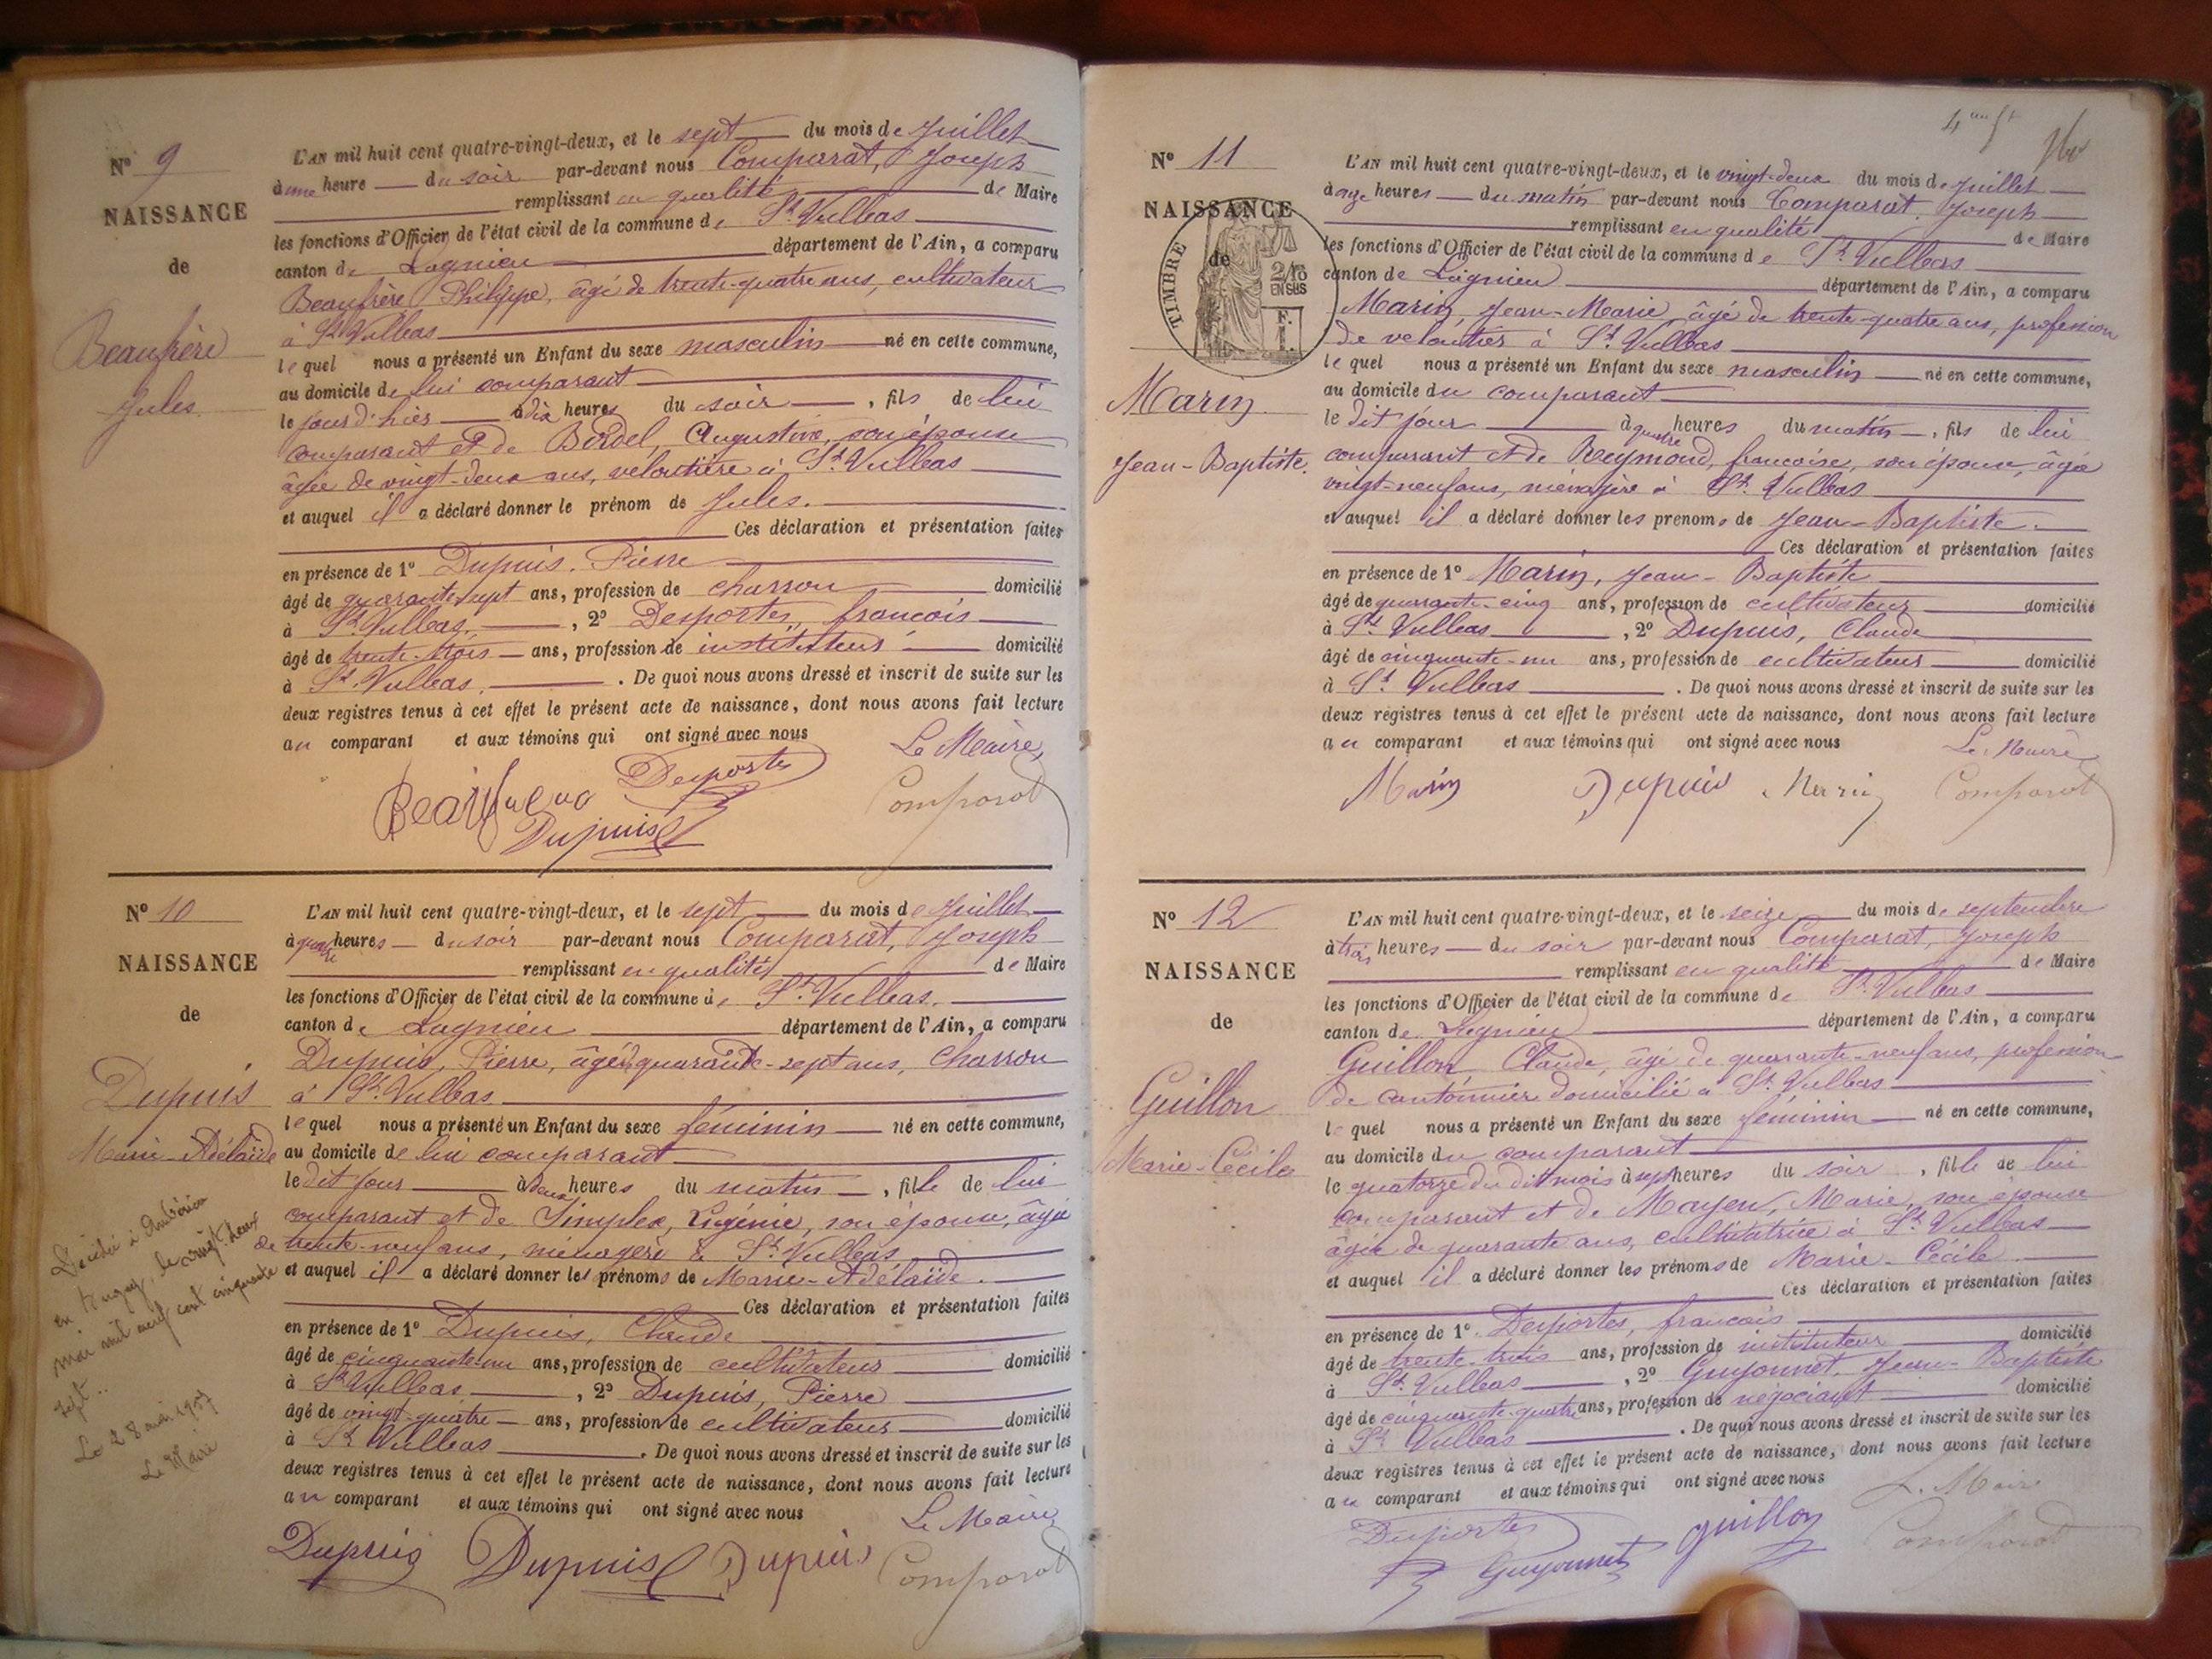 N° 9
NAISSANCE
de
Beaufrère
Jules.
L'AN mil huit cent quatre-vingt-deux, et le sept du mois de Juillet
à une heure du soir par-devant nous Comparat, Joseph
remplissant en qualité de Maire
les fonctions d'Officier de l'état civil de la commune de St. Vulbas
canton de Lagnieu département de l'Ain, a comparu
Beaufrère Philippe, âgé de trente-quatre ans, cultivateur
à St. Vulbas
lequel nous a présenté un Enfant du sexe masculin né en cette commune,
au domicile de lui comparant
le jour d'hier à dix heures du soir, fils de lui
comparant et de Bordel, Augustine, son épouse
âgée de vingt-deux ans, veloutière à St. Vulbas
et auquel il a déclaré donner le prénom de Jules.
Ces déclaration et présentation faites
en présence de 1° Dupuis. Pierre
âgé de quarante-sept ans, profession de charron domicilié
à St. Vulbas, 2° Desportes, françois
âgé de trente-trois ans, profession de instituteur domicilié
à St. Vulbas. De quoi nous avons dressé et inscrit de suite sur les
deux registres tenus à cet effet le présent acte de naissance, dont nous avons fait lecture
au comparant et aux témoins qui ont signé avec nous
Le Maire,
Desportes
Comparat
Dupuis
N° 10
NAISSANCE
de
Dupuis
Marie-Adélaïde
L'AN mil huit cent quatre-vingt-deux, et le sept du mois de Juillet
à quatre heures du soir par-devant nous Comparat, Joseph
remplissant en qualité de Maire
les fonctions d'Officier de l'état civil de la commune de St. Vulbas.
canton de Lagnieu département de l'Ain, a comparu
Dupuis, Pierre, âgé de quarante-sept ans, Charron
à St. Vulbas
lequel nous a présenté un Enfant du sexe féminin né en cette commune,
au domicile de lui comparant
le dit jour à deux heures du matin, fille de lui
comparant et de Simplex, Eugénie, son épouse, âgée
de trente-neuf ans, ménagère à St. Vulbas
et auquel il a déclaré donner les prénoms de Marie-Adélaïde.
Ces déclaration et présentation faites
en présence de 1° Dupuis, Claude
âgé de cinquante-un ans, profession de cultivateur domicilié
à St. Vulbas, 2° Dupuis, Pierre
âgé de vingt-quatre ans, profession de cultivateur domicilié
à St. Vulbas. De quoi nous avons dressé et inscrit de suite sur les
deux registres tenus à cet effet le présent acte de naissance, dont nous avons fait lecture
au comparant et aux témoins qui ont signé avec nous
Le Maire,
Dupuis Dupuis Dupuis Comparat
Décédée à Ambérieu
en Bugey, le vingt-deux
mai mil neuf cent cinquante
sept..
Le 28 mai 1957
Le Maire
N° 11
NAISSANCE
de
TIMBRE
2/10
EN SUS
F.
I.
Marin
Jean-Baptiste.
L'AN mil huit cent quatre-vingt-deux, et le vingt-deux du mois de Juillet
à onze heures du matin par-devant nous Comparat, Joseph
remplissant en qualité de Maire
les fonctions d'Officier de l'état civil de la commune de St. Vulbas
canton de Lagnieu département de l'Ain, a comparu
Marin, Jean-Marie, âgé de trente-quatre ans, profession
de veloutier à St. Vulbas
lequel nous a présenté un Enfant du sexe masculin né en cette commune,
au domicile du comparant
le dit jour à quatre heures du matin, fils de lui
comparant et de Reymond, françoise, son épouse, âgée
vingt-neuf ans, ménagère à St. Vulbas
et auquel il a déclaré donner les prénoms de Jean-Baptiste.
Ces déclaration et présentation faites
en présence de 1° Marin, Jean-Baptiste
âgé de quarante-cinq ans, profession de cultivateur domicilié
à St. Vulbas, 2° Dupuis, Claude
âgé de cinquante-un ans, profession de cultivateur domicilié
à St. Vulbas. De quoi nous avons dressé et inscrit de suite sur les
deux registres tenus à cet effet le présent acte de naissance, dont nous avons fait lecture
au comparant et aux témoins qui ont signé avec nous
Le Maire
Marin Dupuis Marin Comparat
N° 12
NAISSANCE
de
Guillon
Marie-Cécile
L'AN mil huit cent quatre-vingt-deux, et le seize du mois de septembre
à trois heures du soir par-devant nous Comparat, Joseph
remplissant en qualité de Maire
les fonctions d'Officier de l'état civil de la commune de St. Vulbas
canton de Lagnieu département de l'Ain, a comparu
Guillon, Claude, âgé de quarante-neuf ans, profession
de cantonnier domicilié à St. Vulbas
lequel nous a présenté un Enfant du sexe féminin né en cette commune,
au domicile du comparant
le quatorze du dit mois à sept heures du soir, fille de lui
comparant et de Mayen, Marie, son épouse
âgée de quarante ans, cultivatrice à St. Vulbas
et auquel il a déclaré donner les prénoms de Marie-Cécile
Ces déclaration et présentation faites
en présence de 1° Desportes, françois
âgé de trente-trois ans, profession de instituteur domicilié
à St. Vulbas, 2° Guyonnet, Jean-Baptiste
âgé de cinquante-quatre ans, profession de négociant domicilié
à St. Vulbas. De quoi nous avons dressé et inscrit de suite sur les
deux registres tenus à cet effet le présent acte de naissance, dont nous avons fait lecture
au comparant et aux témoins qui ont signé avec nous
Le Maire
Desportes Guyonnet guillon Comparat